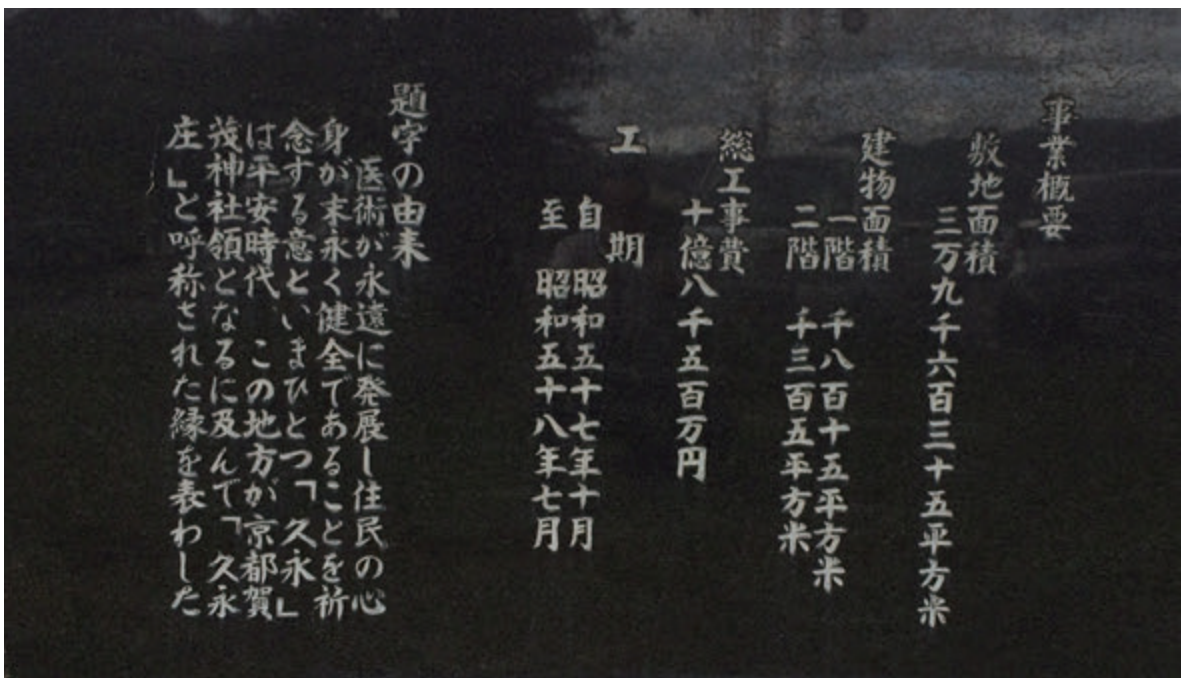 事業概要
敷地面積
三万九千六百三十五平方米
建物面積
一階 千八百十五平方米
二階 千三百五平方米
総工事費
十億八千五百万円
工期
自 昭和五十七年十月
至 昭和五十八年七月
題字の由来
医術が永遠に発展し住民の心
身が末永く健全であることを祈
念する意といまひとつ「久永」
は平安時代、この地方が京都賀
茂神社領となるに及んで「久永
庄」と呼称された縁を表わした